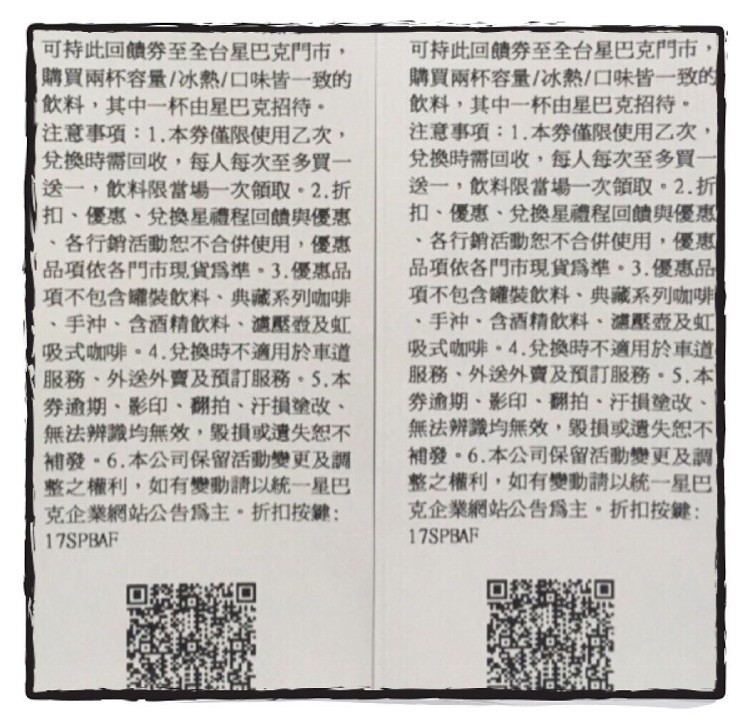 可持此回饋券至全台星巴克門市，
購買兩杯容量/冰熱/口味皆一致的
飲料，其中一杯由星巴克招待。
注意事項：1.本券僅限使用乙次，
兌換時需回收，每人每次至多買一
送一，飲料限當場一次領取。2.折
扣、優惠、兌換星禮程回饋與優惠
、各行銷活動恕不合併使用，優惠
品項依各門市現貨為準。3.優惠品
項不包含罐裝飲料、典藏系列咖啡
、手沖、含酒精飲料、濾壓壺及虹
吸式咖啡。4.兌換時不適用於車道
服務、外送外賣及預訂服務。5.本
券逾期、影印、翻拍、汙損塗改、
無法辨識均無效，毀損或遺失恕不
補發。6.本公司保留活動變更及調
整之權利，如有變動請以統一星巴
克企業網站公告為主。折扣按鍵:
17SPBAF
可持此回饋券至全台星巴克門市，
購買兩杯容量/冰熱/口味皆一致的
飲料，其中一杯由星巴克招待。
注意事項：1.本券僅限使用乙次，
兌換時需回收，每人每次至多買一
送一，飲料限當場一次領取。2.折
扣、優惠、兌換星禮程回饋與優惠
、各行銷活動恕不合併使用，優惠
品項依各門市現貨為準。3.優惠品
項不包含罐裝飲料、典藏系列咖啡
、手沖、含酒精飲料、濾壓壺及虹
吸式咖啡。4.兌換時不適用於車道
服務、外送外賣及預訂服務。5.本
券逾期、影印、翻拍、汙損塗改、
無法辨識均無效，毀損或遺失恕不
補發。6.本公司保留活動變更及調
整之權利，如有變動請以統一星巴
克企業網站公告為主。折扣按鍵:
17SPBAF